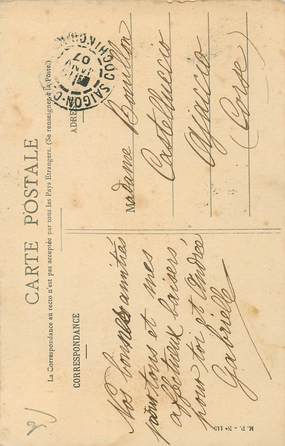 CARTE POSTALE
La Correspondance au recto n'est pas acceptée par tous les Pays Étrangers. (Se renseigner à la Poste.)
CORRESPONDANCE
ADRESSE
SAIGON-C
COCHINCHINE
07
Nos bonnes amitiés
pour tous et mes
affectueux baisers,
pour toi et Andrée
Gabrielle
Madame
Castelluccio
Ajaccio
(Corse)